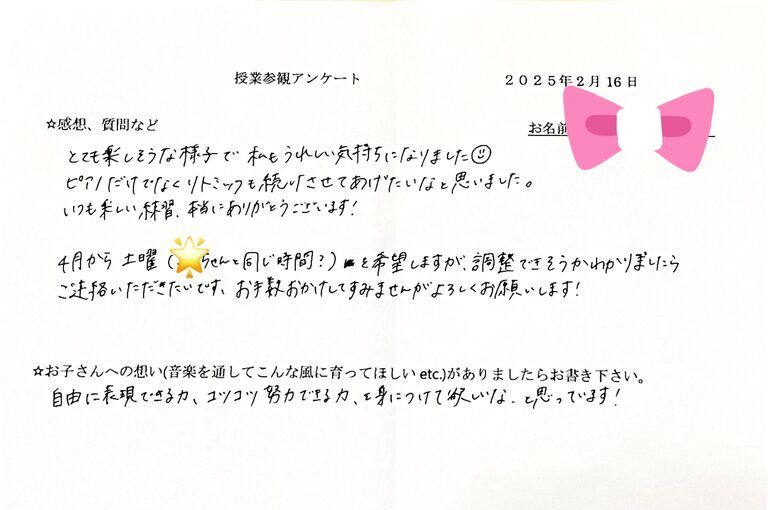 授業参観アンケート
2025年2月16日
☆感想、質問など
お名前
とても楽しそうな様子で私もうれしい気持ちになりました☺
ピアノだけでなくリトミックも続けさせてあげたいなと思いました。
いつも楽しい練習、本当にありがとうございます!
4月から土曜(ちゃんと同じ時間?)を希望しますが、調整できそうかわかりましたら
ご連絡いただきたいです、お手数おかけしてすみませんがよろしくお願いします!
☆お子さんへの想い(音楽を通してこんな風に育ってほしいetc.)がありましたらお書き下さい。
自由に表現できる力、コツコツ努力できる力、を身につけて欲しいな、と思っています!